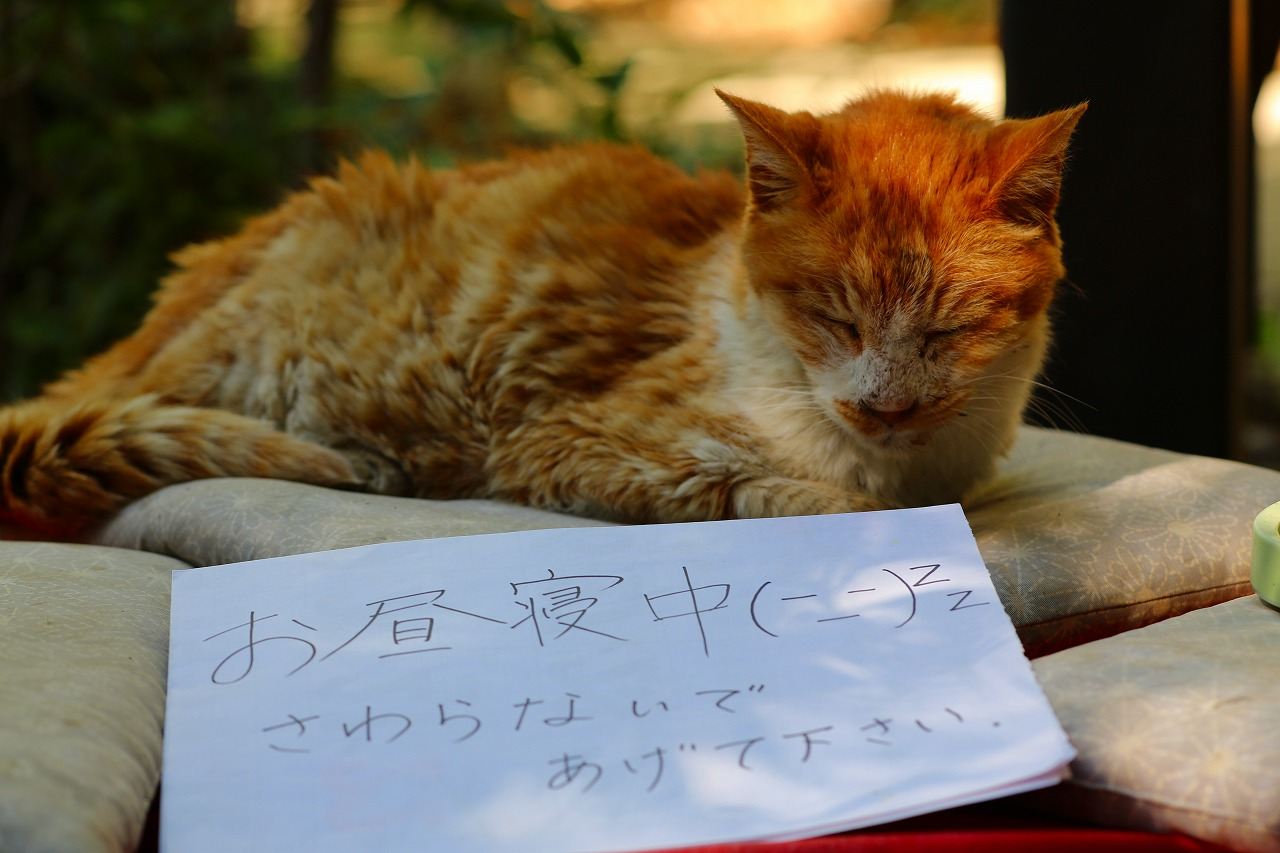 お昼寝中(-_=)zz
さわらないで
あげて下さい.